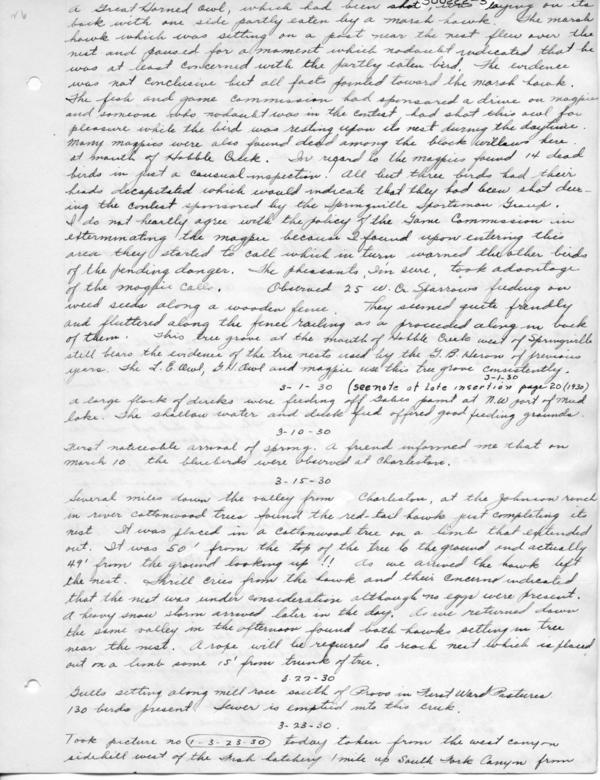 a Great Horned Owl, which had been shot laying on its
back with one side partly eaten by a marsh hawk. The marsh
hawk which was sitting on a post near the nest flew over the
nest and paused for a moment which nodoubt indicated that he
was at least concerned with the partly eaten bird. The evidence
was not conclusive but all facts pointed toward the marsh hawk.
The fish and game commission had sponsored a drive on magpies
and someone who nodoubt was in the contest had shot this owl for
pleasure while the bird was resting upon its nest during the daytime.
Many magpies were also found dead among the black willows here
at mouth of Hobble Creek. In regard to the magpies found 14 dead
birds in just a causual inspection! All but three birds had their
heads decapitated which would indicate that they had been shot dur-
ing the contest sponsored by the Springville Sportsman Group.
I do not heartly agree with the policy of the Game Commission in
exterminating the magpie because I found upon entering this
area they started to call which in turn warned the other birds
of the pending danger. The pheasants, I'm sure, took advantage
of the magpie calls. Observed 25 W.C. Sparrows feeding on
weed seeds along a wooden fence. They seemed quite friendly
and fluttered along the fence railing as a proceeded along in back
of them. This tree grove at the mouth of Hobble Creek west of Springville
still bears the evidence of the tree nests used by the G.B. Heron of previous
years. The L.E. Owl, G.H. Owl and magpie use this tree grove consistently.
3-1-30
3-1-30 (see note of late insertion page 20 (1930)
a large flock of ducks were feeding off Gabes point at N.W. part of Mud
lake. The shallow water and duck fud offered good feeding grounds.
3-10-30
First noticeable arrival of spring. A friend informed me that on
March 10 the bluebirds were observed at Charleston.
3-15-30
Several miles down the valley from Charleston, at the Johnson ranch
in river cottonwood trees found the red-tail hawk just completing its
nest. It was placed in a cottonwood tree on a limb that extended
out. It was 50' from the top of the tree to the ground and actually
49' from the ground looking up!! As we arrived the hawk left
the nest. Shrill cries from the hawk and their concern indicated
that the nest was under consideration although no eggs were present.
A heavy snow storm arrived later in the day. As we returned down
the same valley in the afternoon found both hawks setting in tree
near the nest. A rope will be required to reach nest which is placed
out on a limb some 15' from trunk of tree.
3-22-30
Gulls setting along mill race south of Provo in First Ward Pastures
130 birds present. Sewer is emptied into this creek.
3-23-30.
Took picture no 1-3-23-30 today taken from the west canyon
sidehill west of the Fish hatchery 1 mile up South Fork Canyon from